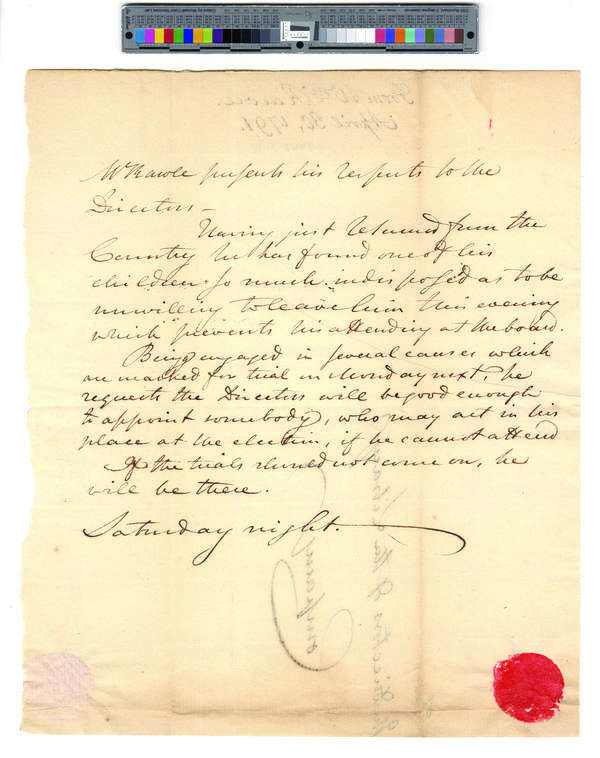 Mr Rawle presents his respects to the
Directors –
Having just returned from the
Country he has found one of his
children so much indisposed as to be
unwilling to leave him this evening
which prevents his attending at the board.
Being engaged in several causes which
are marked for trial on Monday next, he
requests the Directors will be good enough
to appoint somebody, who may act in his
place at the election, if he cannot attend
If the trials should not come on, he
will be there.
Saturday night.
From Wm Rawle
April 30, 1791.
Directors of the Library
Company